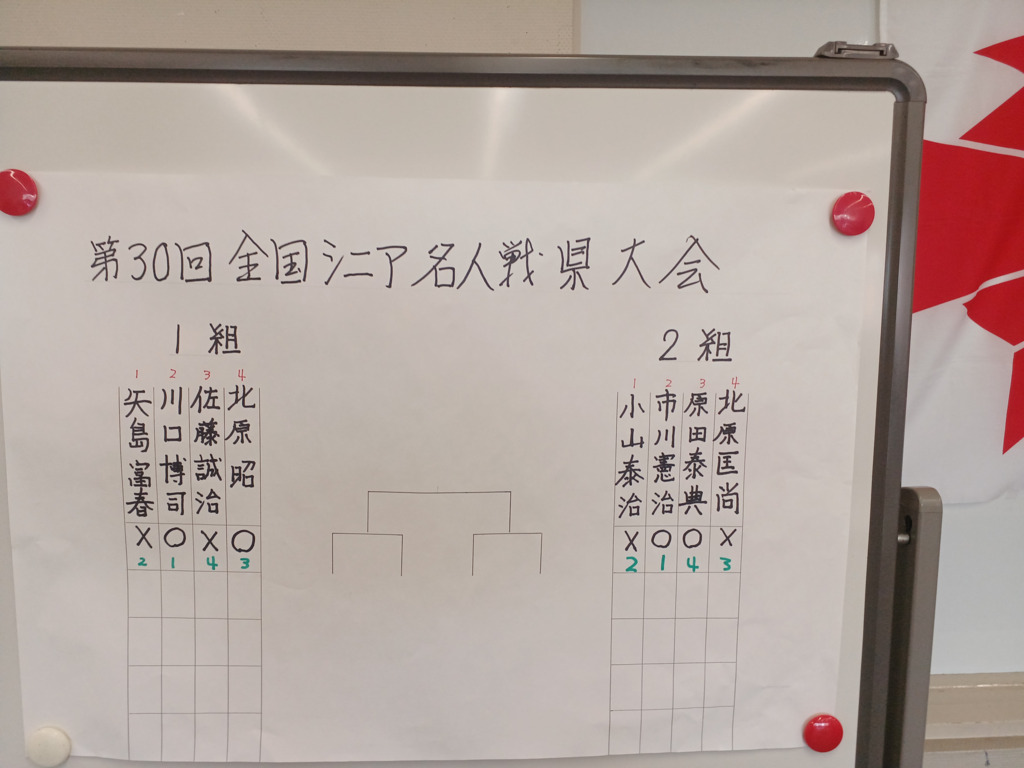 第30回全国シニア名人戦県大会
1組
1 2 3 4
矢島富春
川口博司
佐藤誠治
北原昭
X O X O
2 1 4 3
2組
1 2 3 4
小山泰治
市川憲治
原田泰典
北原匡尚
X O O X
2 1 4 3